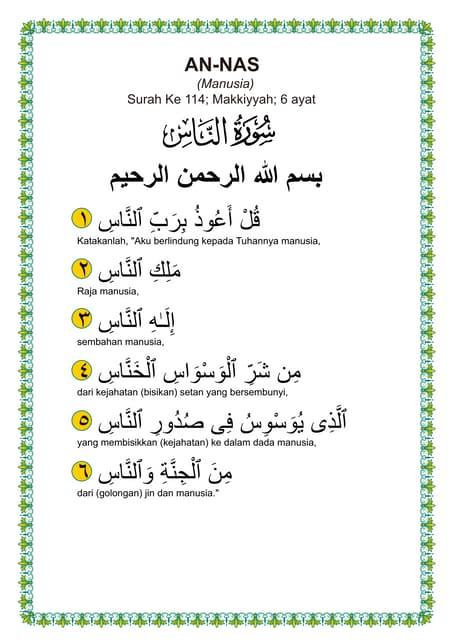 AN-NAS
(Manusia)
Surah Ke 114; Makkiyyah; 6 ayat
سُورَةُ النَّاسِ
بسم الله الرحمن الرحيم
قُلْ أَعُوذُ بِرَبِّ ٱلنَّاسِ ١
Katakanlah, "Aku berlindung kepada Tuhannya manusia,
مَلِكِ ٱلنَّاسِ ٢
Raja manusia,
إِلَـٰهِ ٱلنَّاسِ ٣
sembahan manusia,
مِن شَرِّ ٱلْوَسْوَاسِ ٱلْخَنَّاسِ ٤
dari kejahatan (bisikan) setan yang bersembunyi,
ٱلَّذِى يُوَسْوِسُ فِى صُدُورِ ٱلنَّاسِ ٥
yang membisikkan (kejahatan) ke dalam dada manusia,
مِنَ ٱلْجِنَّةِ وَٱلنَّاسِ ٦
dari (golongan) jin dan manusia."